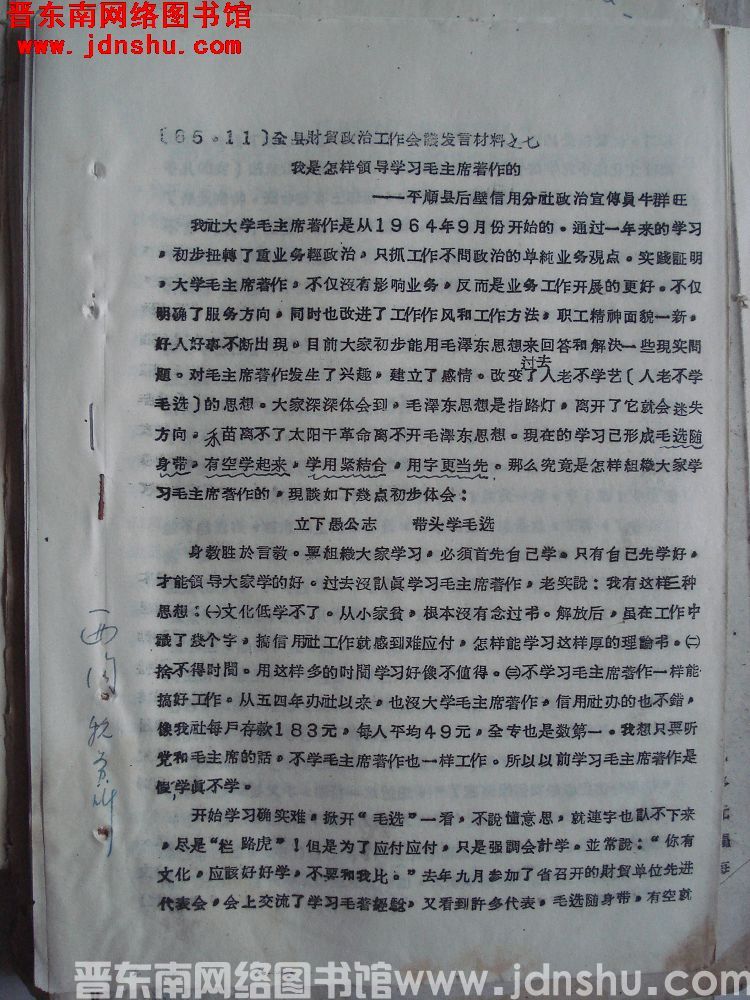 晋东南网络图书馆
www.jdnshu.com
〔65.11〕全县財貿政治工作会議发言材料之七
我是怎样領导学习毛主席著作的
——平順县后壁信用分社政治宣傳員牛群旺
我社大学毛主席著作是从1964年9月份开始的。通过一年来的学习
，初步扭轉了重业务輕政治，只抓工作不問政治的单純业务观点。实践証明
，大学毛主席著作，不仅沒有影响业务，反而是业务工作开展的更好。不仅
明确了服务方向，同时也改进了工作作风和工作方法，职工精神面貌一新，
好人好事不断出现。目前大家初步能用毛澤东思想来回答和解决一些現实問
題。对毛主席著作发生了兴趣，建立了感情。改变了过去人老不学艺〔人老不学
毛选〕的思想。大家深深体会到，毛澤东思想是指路灯，离开了它就会迷失
方向，禾苗离不了太阳干革命离不开毛澤东思想。現在的学习已形成毛选随
身带，有空学起来，学用紧結合，用字更当先。那么究竟是怎样組織大家学
习毛主席著作的，現談如下幾点初步体会：
立下愚公志　　带头学毛选
身教胜於言教。要組織大家学习，必須首先自己学。只有自己先学好，
才能領导大家学的好。过去沒認眞学习毛主席著作，老实說：我有这样三种
思想：㈠文化低学不了。从小家貧，根本沒有念过书。解放后，虽在工作中
識了幾个字，搞信用社工作就感到难应付，怎样能学习这样厚的理論书。㈡
捨不得时間。用这样多的时間学习好像不值得。㈢不学习毛主席著作一样能
搞好工作。从五四年办社以来，也沒大学毛主席著作，信用社办的也不錯，
像我社每戶存款183元，每人平均49元，全专也是数第一。我想只要听
党和毛主席的話，不学毛主席著作也一样工作。所以以前学习毛主席著作是
假学眞不学。
开始学习确实难，掀开“毛选”一看，不說懂意思，就連字也認不下来
，尽是“栏路虎”！但是为了应付应付，只是强調会計学。並常說：“你有
文化，应該好好学，不要和我比。”去年九月参加了省召开的財貿单位先进
代表会，会上交流了学习毛著經驗，又看到許多代表，毛选随身带，有空就
晋东南网络图书馆www.jdnshu.com